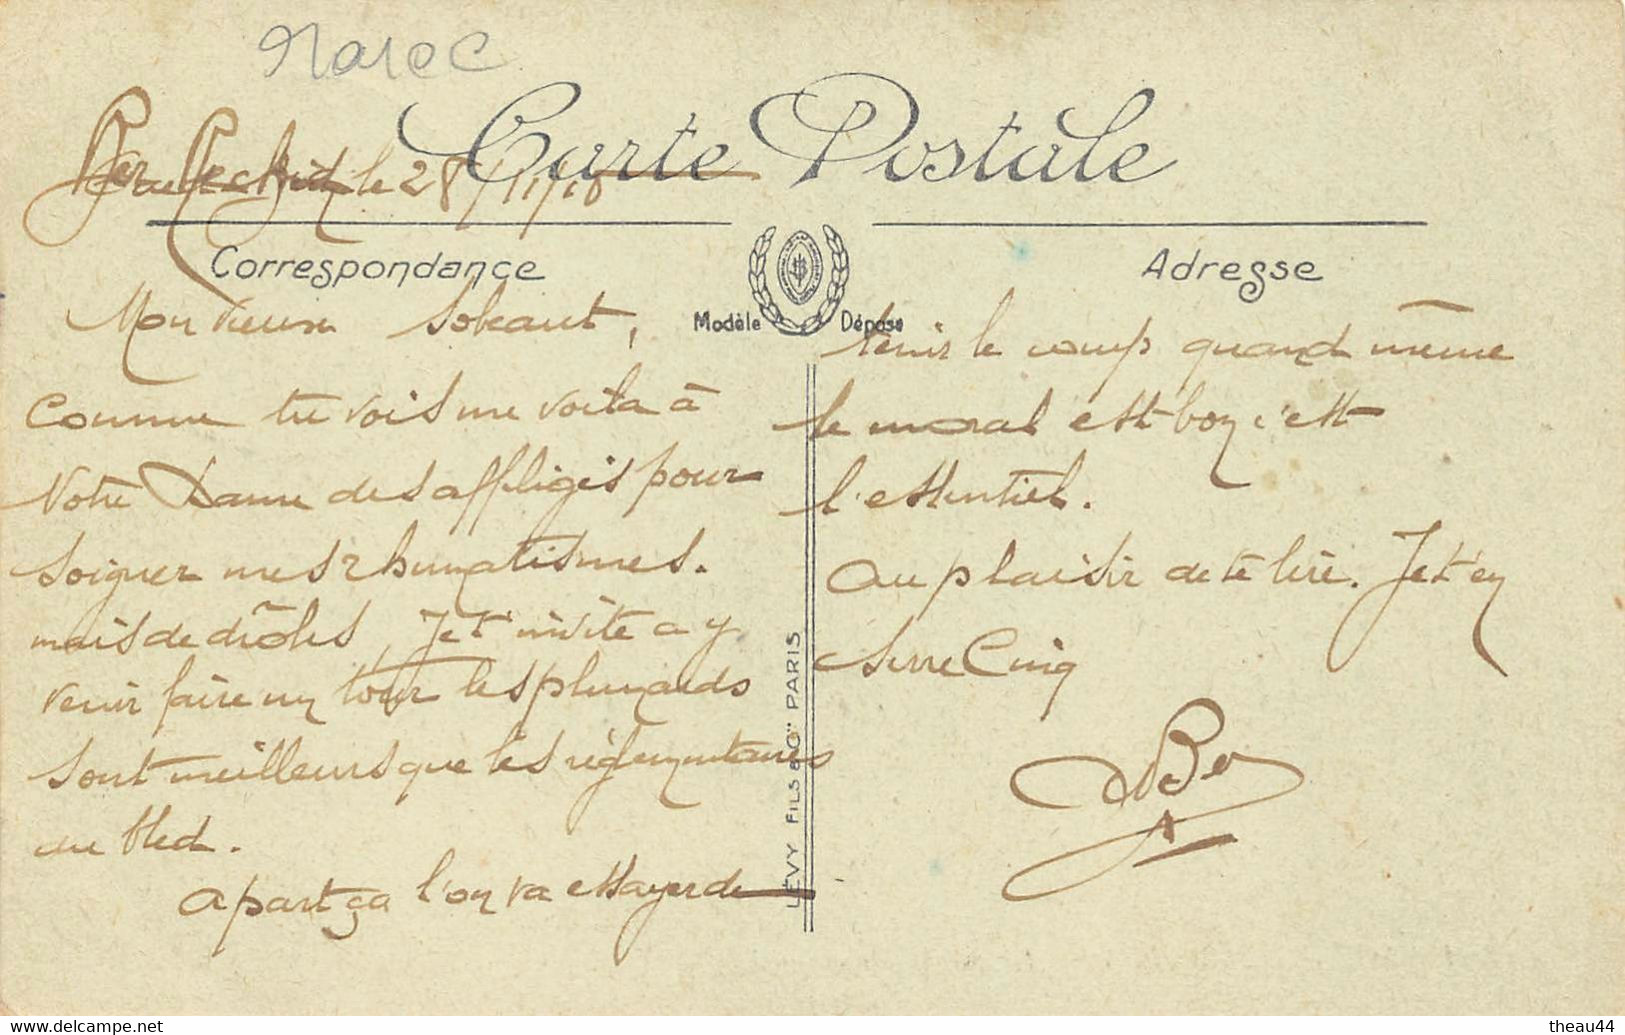 Maroc
Ber Rechid le 28/11/18
Carte Postale
Correspondance
Adresse
Modèle Déposé
LÉVY FILS & Cie PARIS
Mon vieux
Comme tu vois me voila à
Notre Dame des affligés pour
soigner mes rhumatismes.
mais de drôles, Je t'invite a y
venir faire un tour les plumards
sont meilleurs que les réglementaires
au bled.
A part ça l'on va essayer de
tenir le coup quand même
le moral est bon c'est
l'essentiel.
Au plaisir de te lire. Je t'en
serre Cinq
theau44